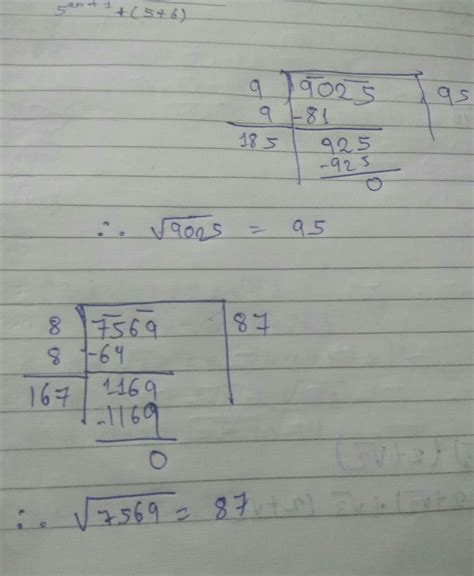 5^2n+1 + (5+6)
9 | 9025 | 95
9 | -81
185 | 925
-925
0
∴ √9025 = 95
8 | 7569 | 87
8 | -64
167 | 1169
-1169
0
∴ √7569 = 87